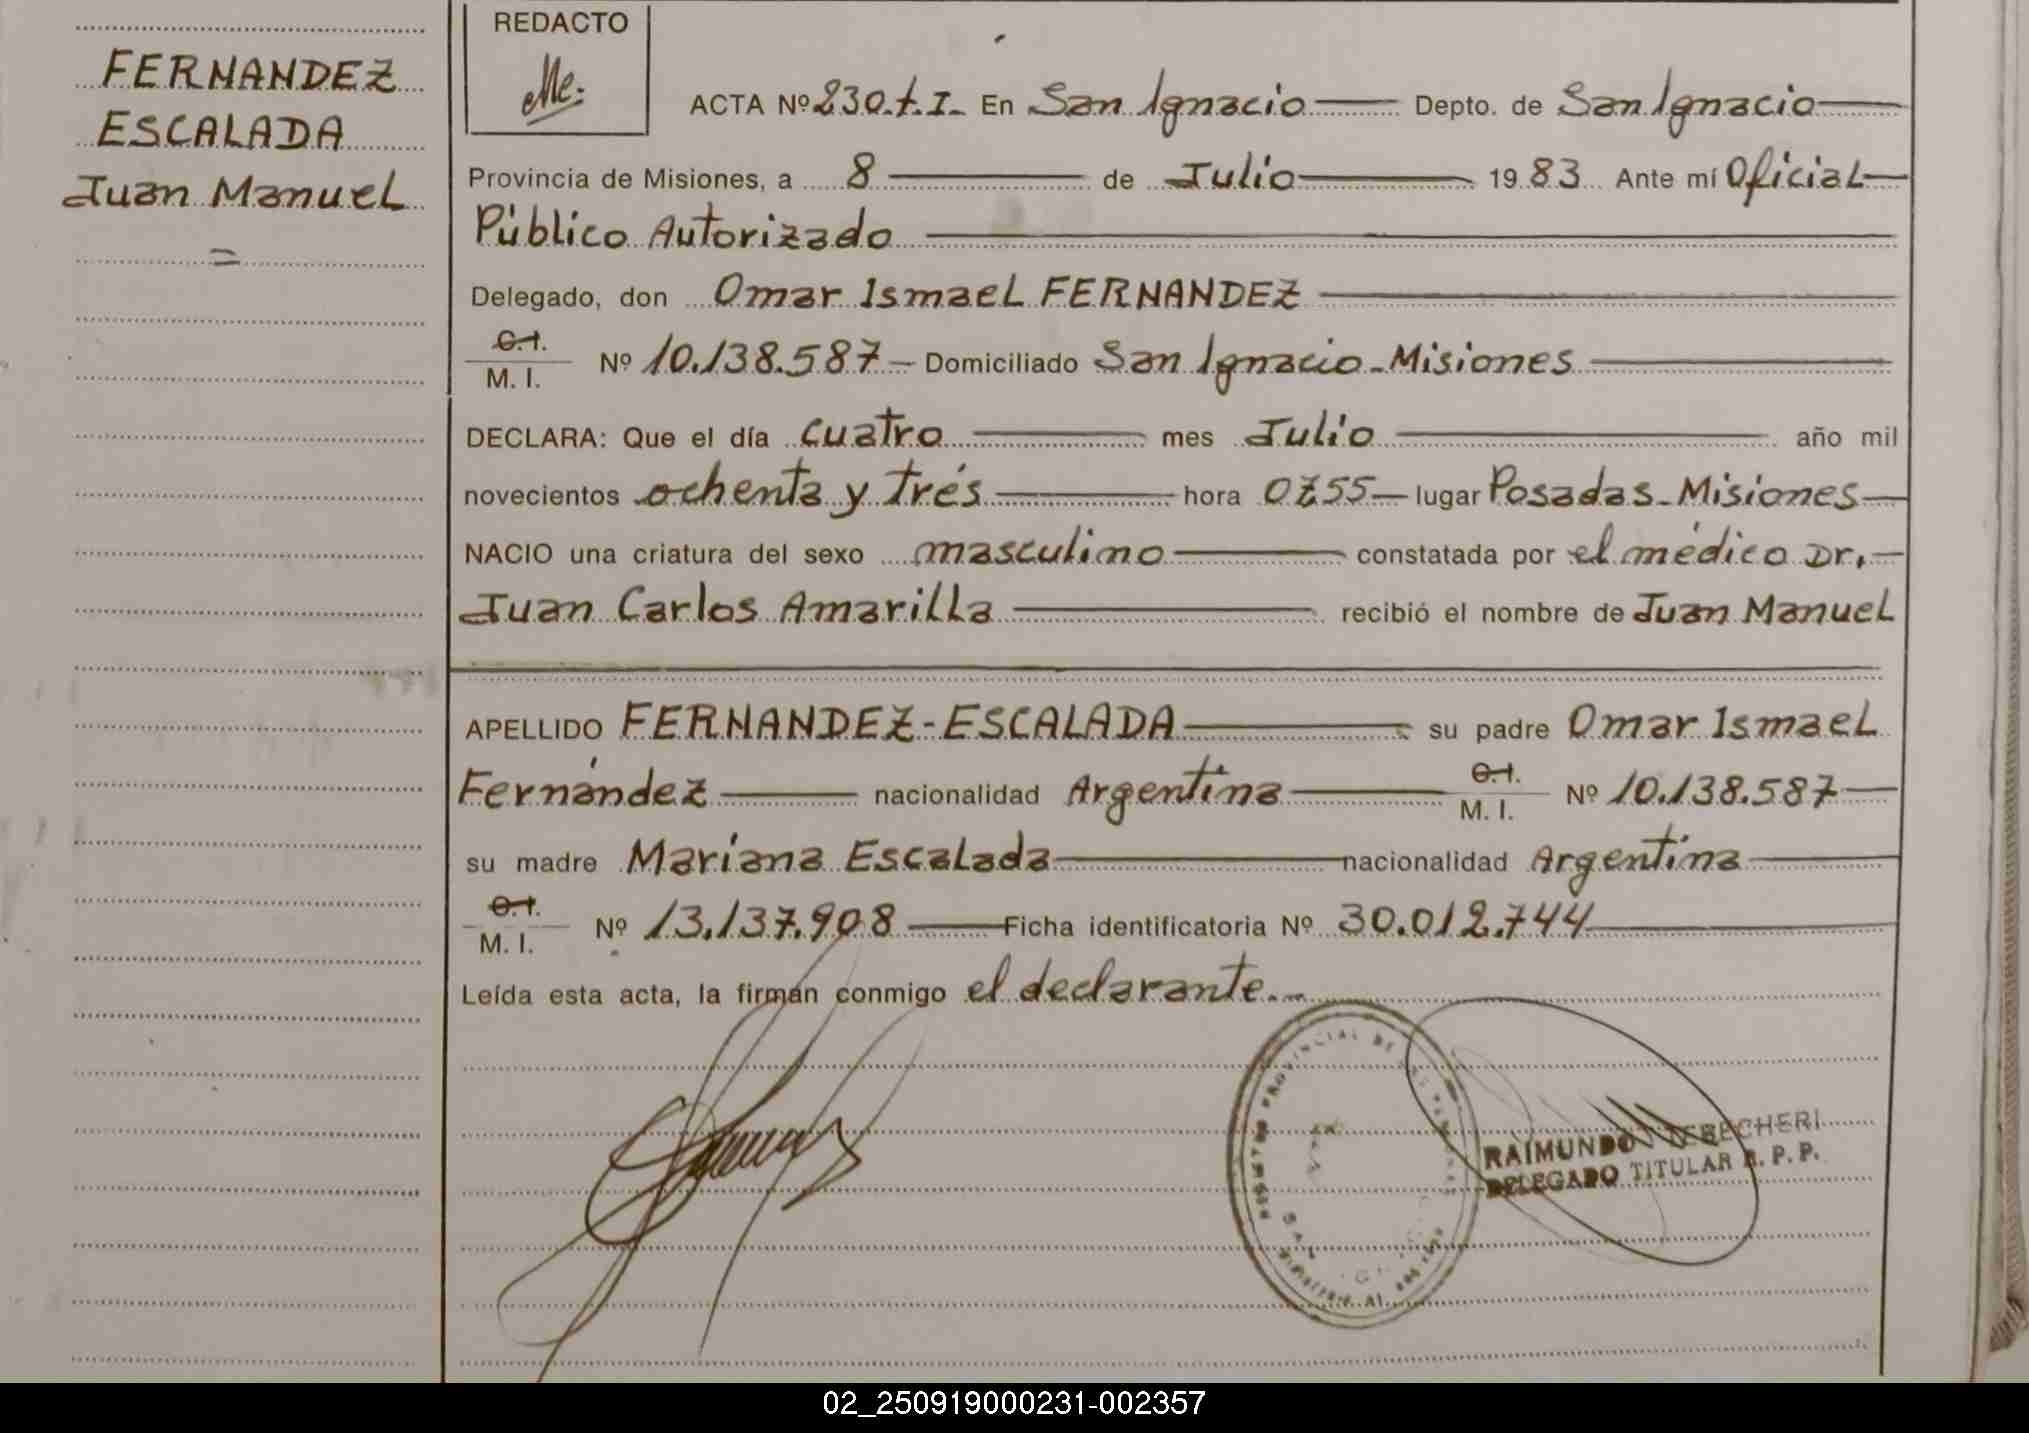 FERNANDEZ
ESCALADA
Juan Manuel
=
REDACTO
ACTA Nº 230.t.I. En San Ignacio Depto. de San Ignacio
Provincia de Misiones, a 8 de Julio 1983 Ante mí Oficial
Público Autorizado
Delegado, don Omar Ismael FERNANDEZ
C.I.
M. I. Nº 10.138.587 Domiciliado San Ignacio-Misiones
DECLARA: Que el día cuatro mes Julio año mil
novecientos ochenta y trés hora 07.55 lugar Posadas-Misiones
NACIO una criatura del sexo masculino constatada por el médico Dr.
Juan Carlos Amarilla recibió el nombre de Juan Manuel
APELLIDO FERNANDEZ-ESCALADA su padre Omar Ismael
Fernández nacionalidad Argentina C.I. M. I. Nº 10.138.587
su madre Mariana Escalada nacionalidad Argentina
C.I.
M. I. Nº 13.137.908 Ficha identificatoria Nº 30.012.744
Leída esta acta, la firman conmigo el declarante.
PROVINCIAL DE
RAIMUNDO BECHERI
DELEGADO TITULAR R. P. P.
02_250919000231-002357